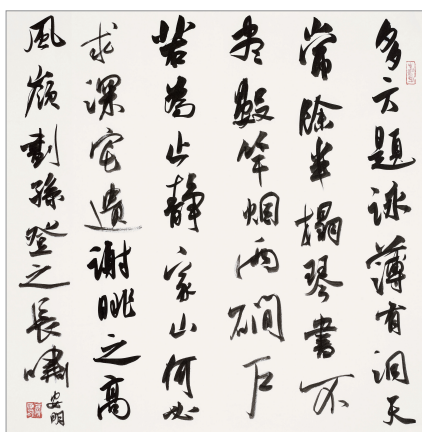 多方題詠薄有洞天
常除半榻琴書不
尽數竿烟雨磵户
若為止靜家山何必
求深宅遺謝朓之高
風嶺劃孫登之長嘯
安明